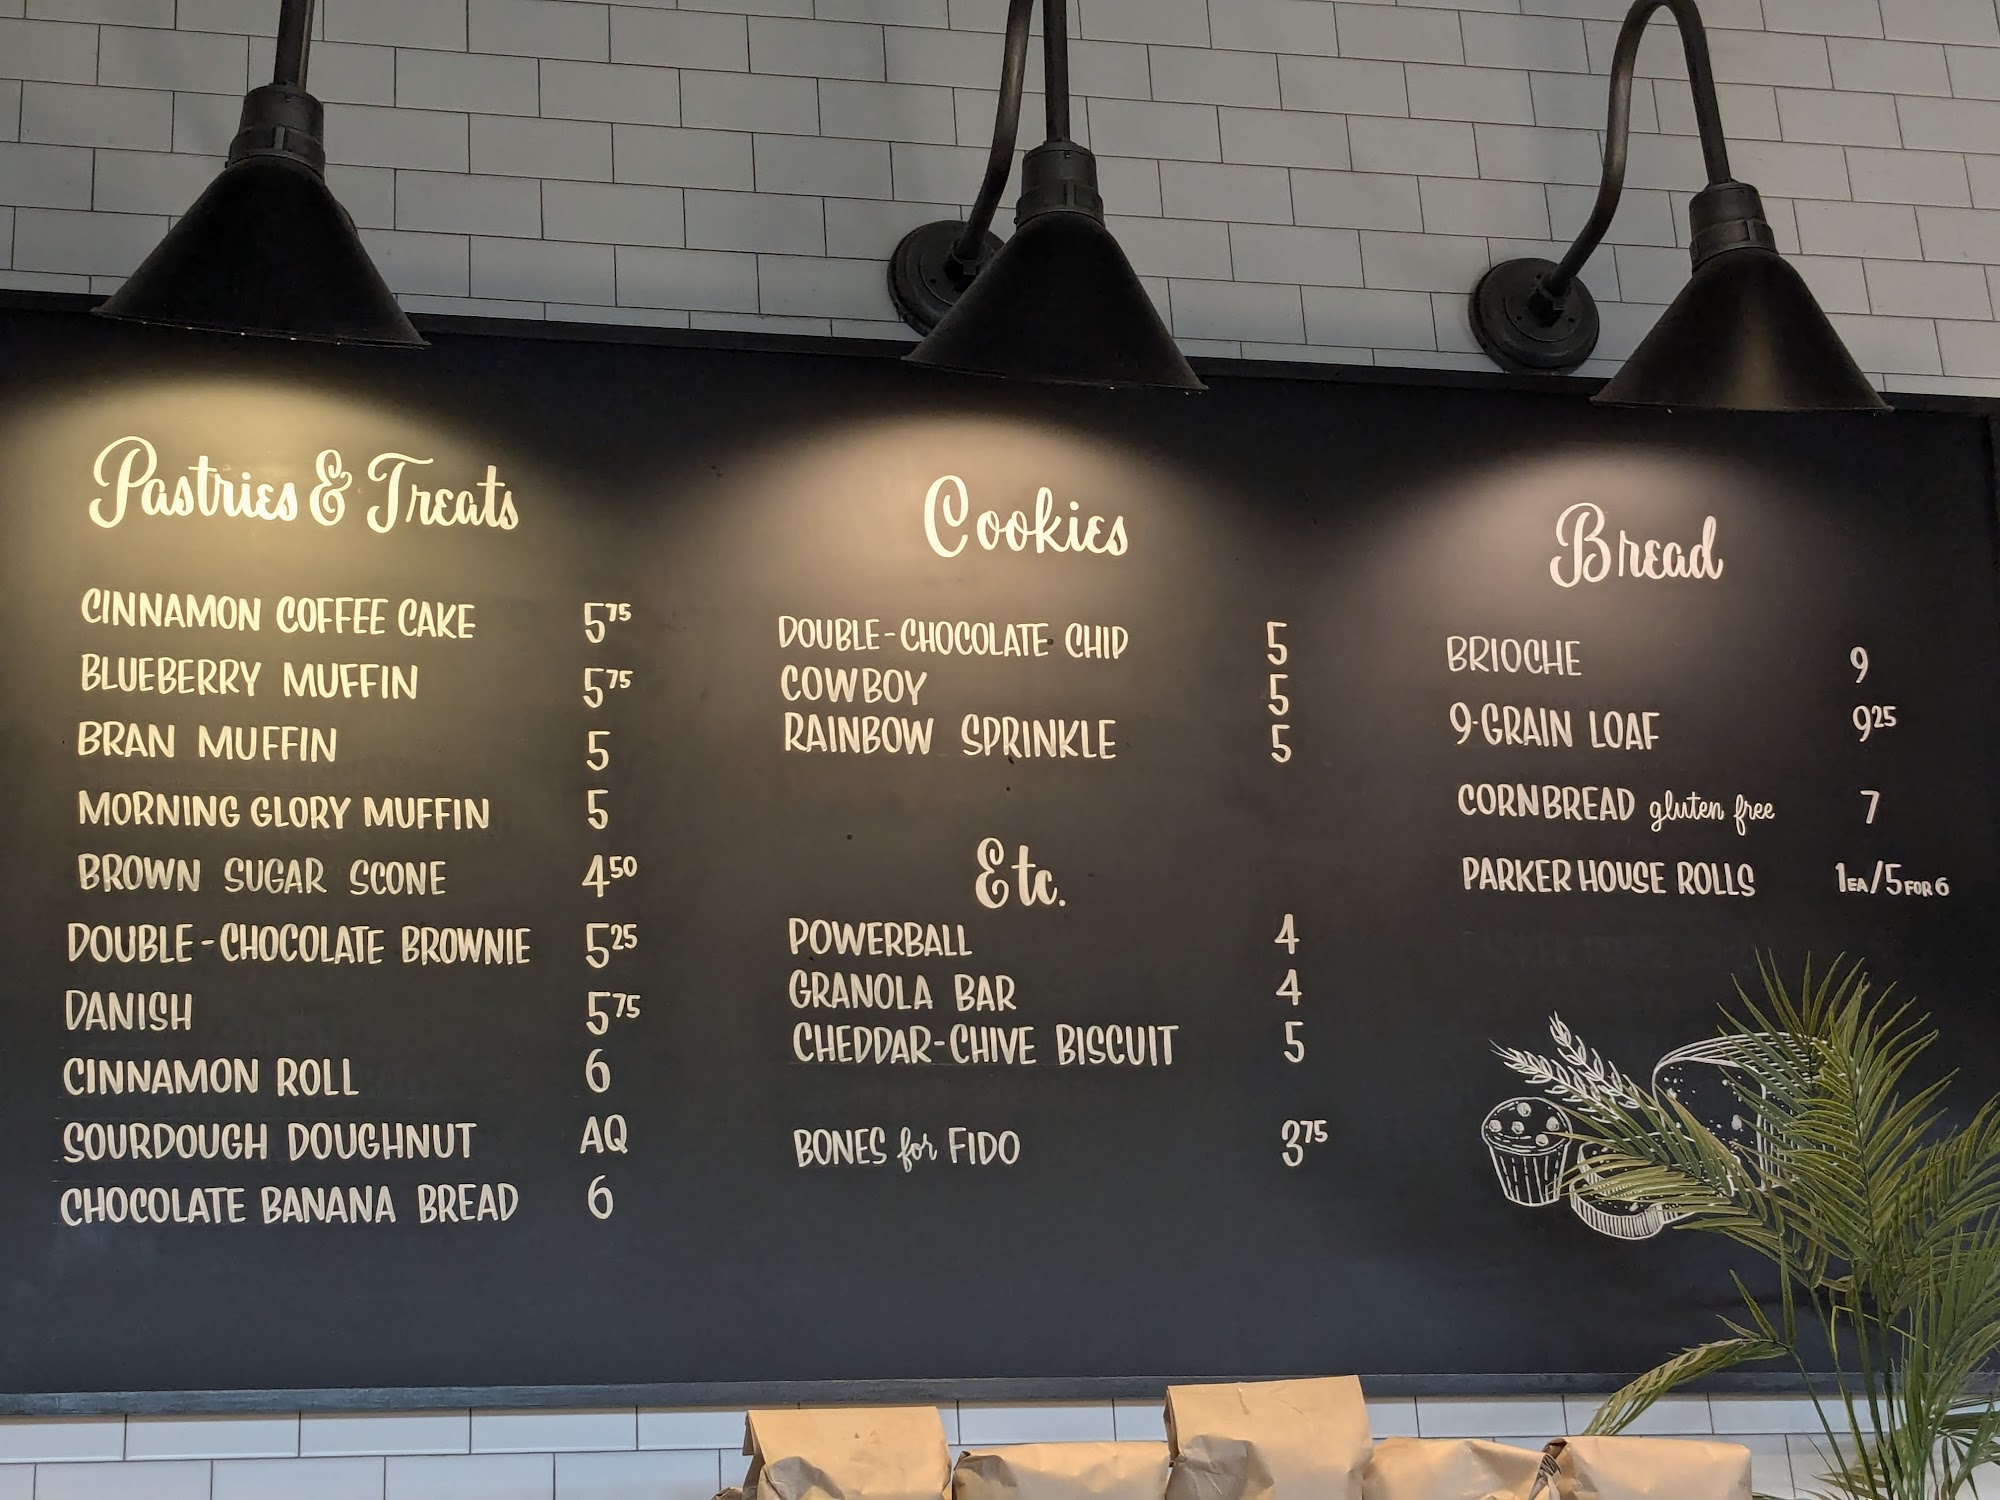 Pastries & Treats
CINNAMON COFFEE CAKE 5.75
BLUEBERRY MUFFIN 5.75
BRAN MUFFIN 5
MORNING GLORY MUFFIN 5
BROWN SUGAR SCONE 4.50
DOUBLE-CHOCOLATE BROWNIE 5.25
DANISH 5.75
CINNAMON ROLL 6
SOURDOUGH DOUGHNUT AQ
CHOCOLATE BANANA BREAD 6
Cookies
DOUBLE-CHOCOLATE CHIP 5
COWBOY 5
RAINBOW SPRINKLE 5
Etc.
POWERBALL 4
GRANOLA BAR 4
CHEDDAR-CHIVE BISCUIT 5
BONES for FIDO 3.75
Bread
BRIOCHE 9
9-GRAIN LOAF 9.25
CORNBREAD gluten free 7
PARKER HOUSE ROLLS 1EA/5FOR6